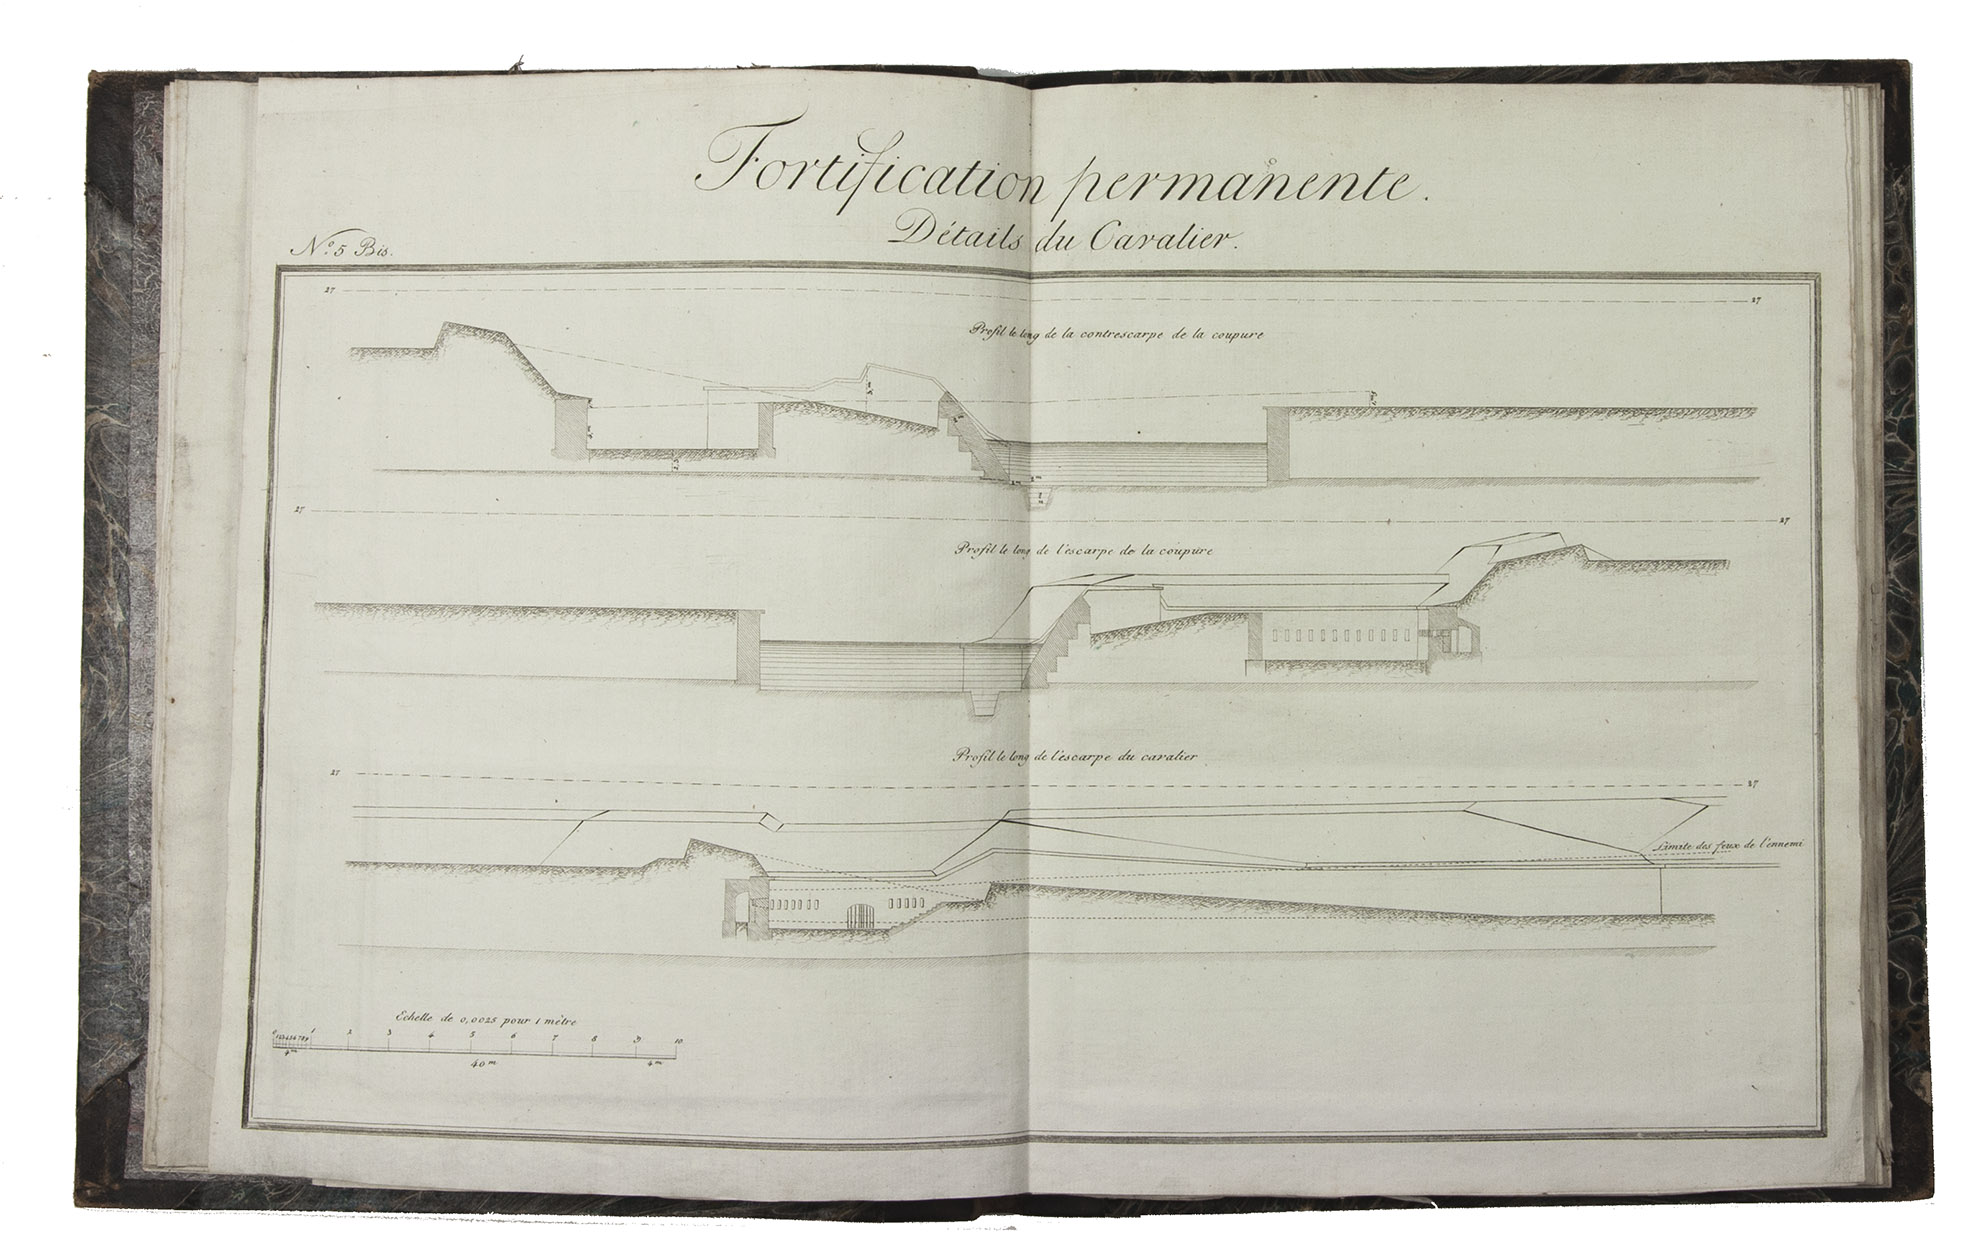 Fortification permanente.
Détails du Cavalier.
N.º 5 Bis.
27 27
Profil le long de la contrescarpe de la coupure
27 27
Profil le long de l'escarpe de la coupure
Profil le long de l'escarpe du cavalier
27 27
Limite des feux de l'ennemi
Echelle de 0,0025 pour 1 mètre
0 1 2 3 4 5 6 7 8 9 1 2 3 4 5 6 7 8 9 10
4m 40m 4m